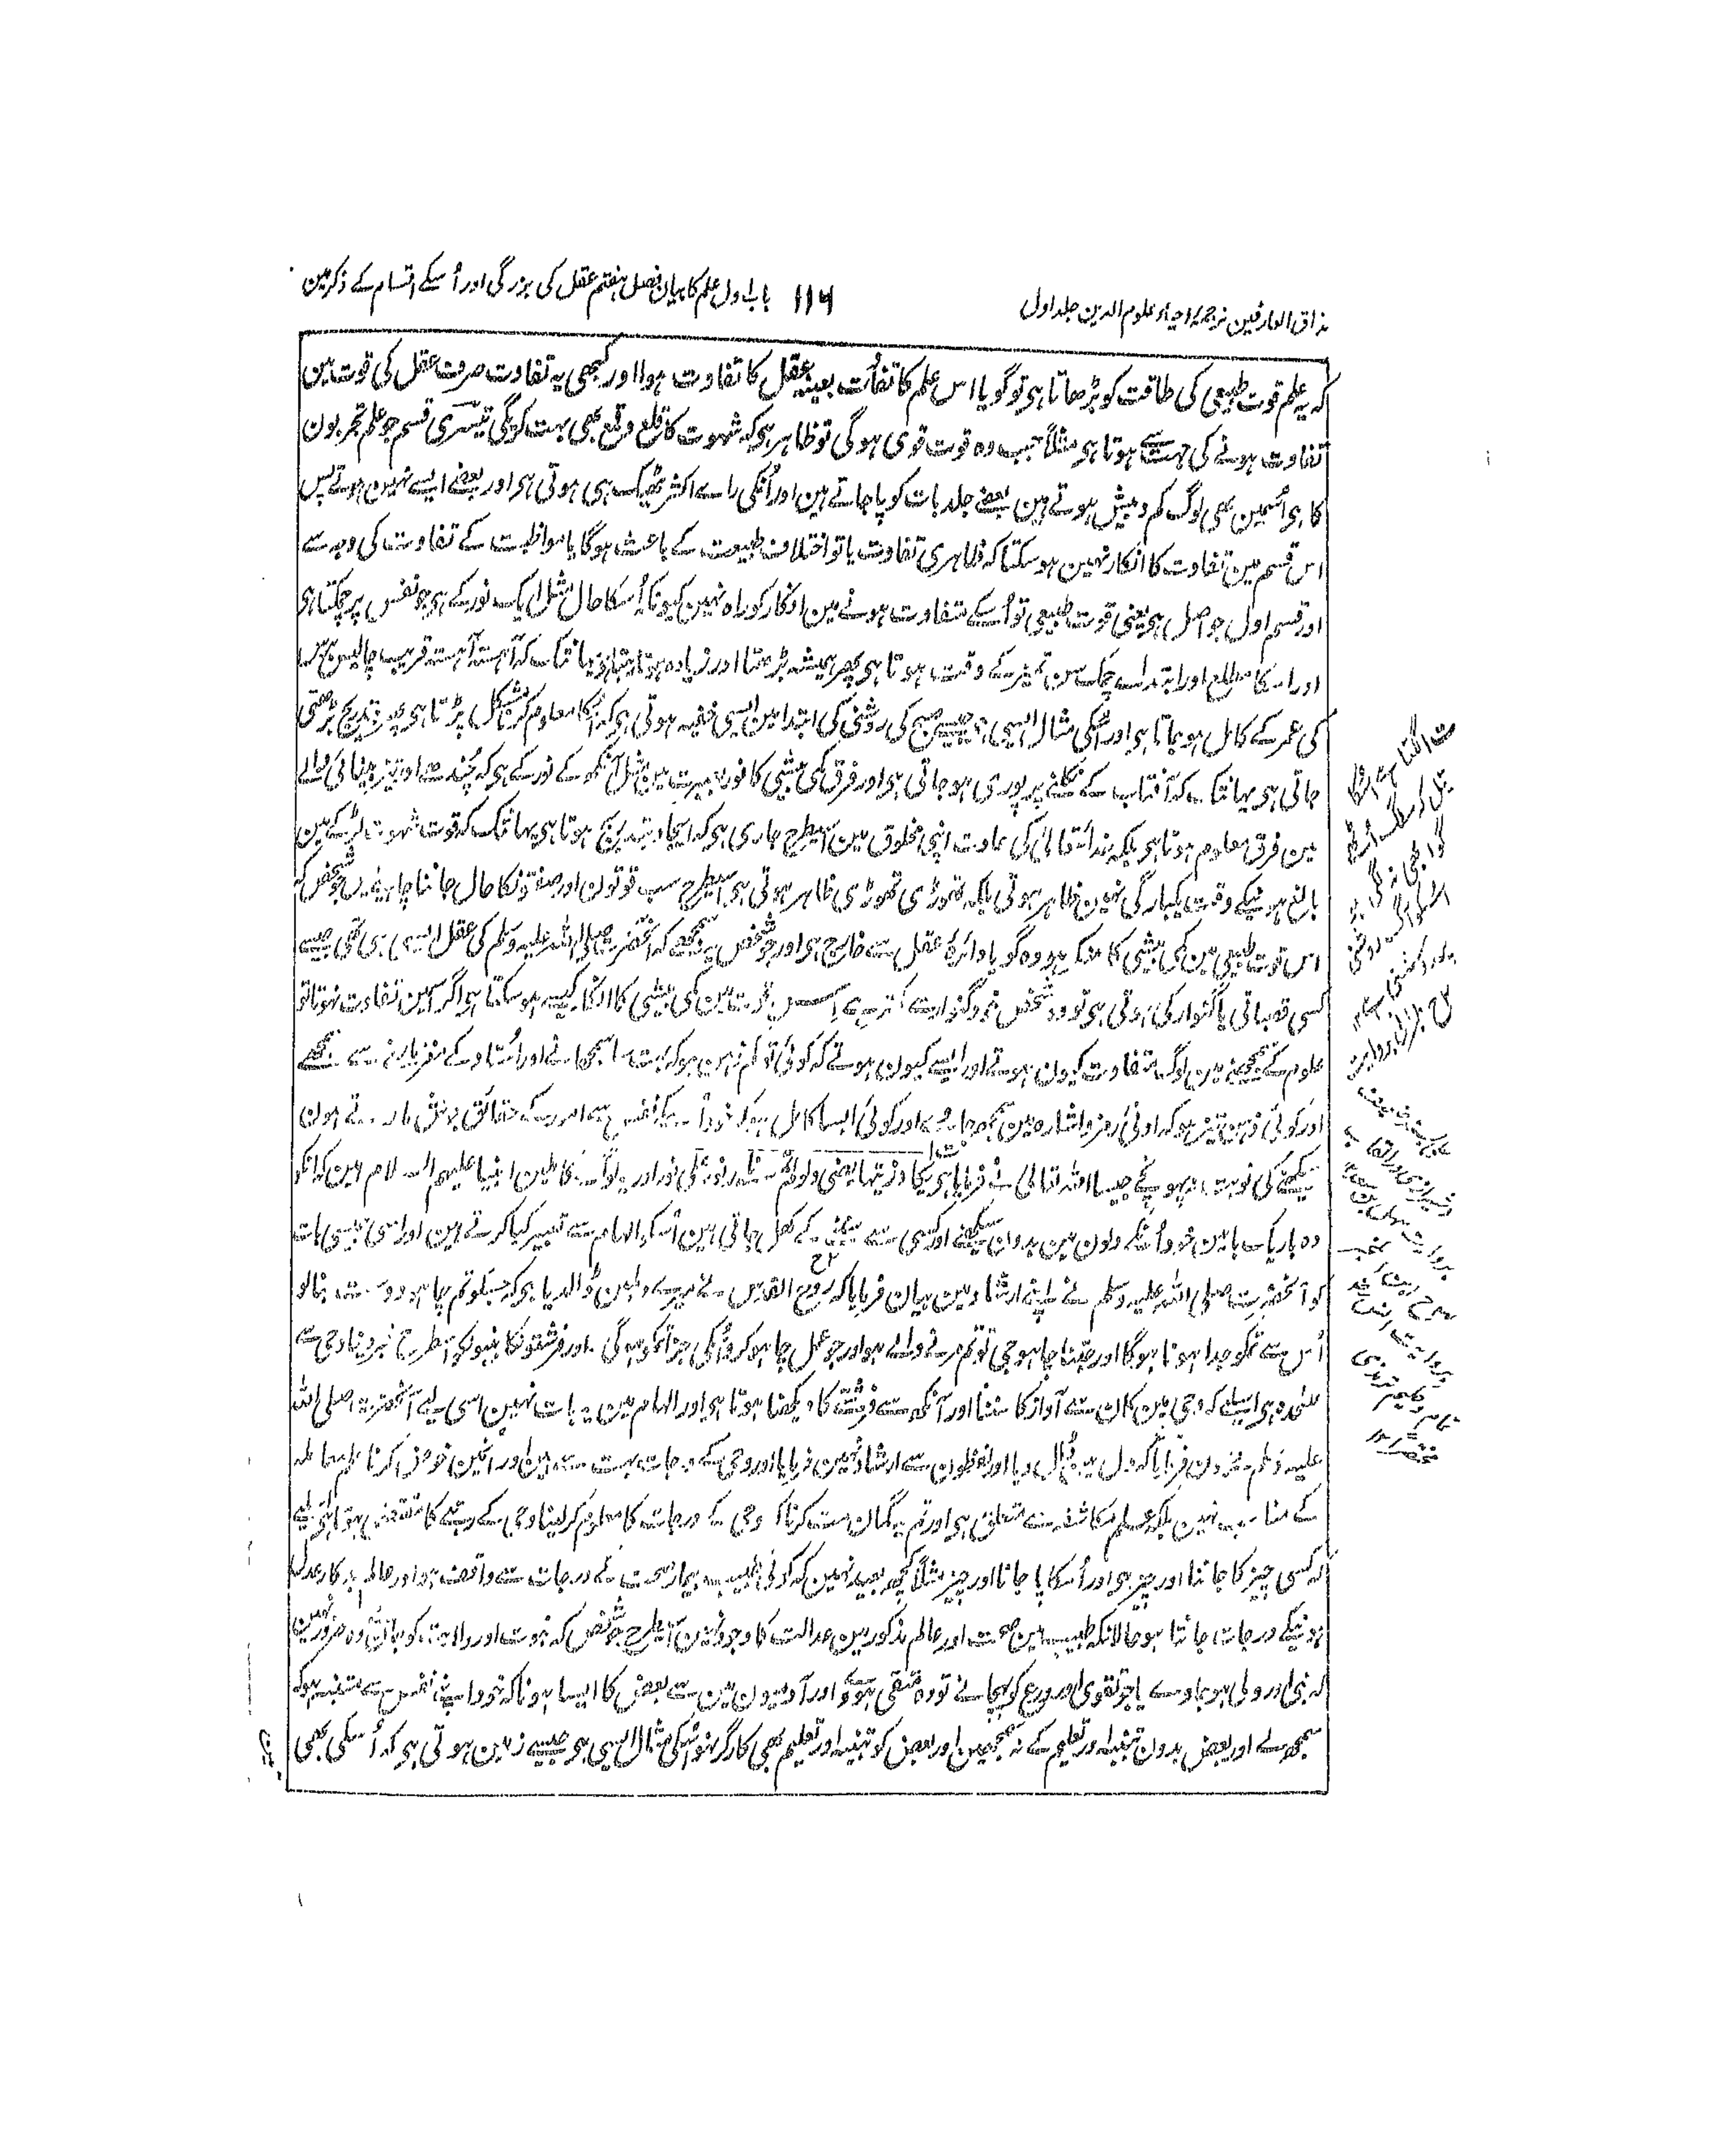 مذاق العارفین ترجمۂ احیاء علوم الدین جلد اول
۱۱۶
باب اول علم کا بیان فصل ہفتم عقل کی بزرگی اور اُسکے اقسام کے ذکر مین
کہ یہ علم قوت طبیعی کی طاقت کو بڑھاتا ہی تو گویا اس علم کا تفاوت بعینہ عقل کا تفاوت ہوا اور کبھی یہ تفاوت صرف عقل کی قوت مین
تفاوت ہونے کی جہت سے ہوتا ہو مثلاً جب وہ قوت قوی ہوگی تو ظاہر ہی کہ شہوت کا قلع وقمع بھی بہت کریگی تیسری قسم جو علم تجربون
کا ہی اُسمین بھی لوگ کم وبیش ہوتے ہین بعضے جلد بات کو پا جاتے ہین اور اُنکی راے اکثر ٹھیک ہی ہوتی ہی اور بعضے ایسے نہین ہوتے پس
اس قسم مین تفاوت کا انکار نہین ہوسکتا کہ ظاہری تفاوت یا تو اختلاف طبیعت کے باعث ہوگا یا مواظبت کے تفاوت کی وجہ سے
اور قسم اول جو اصل ہی یعنی قوت طبیعی تو اُسکے متفاوت ہونے مین انکار کو راہ نہین کیونکہ اُسکا حال مثل ایک نور کے ہی جو نفس پر چمکتا ہی
اور اسکا مطلع اور ابتداے چمک سن تمیز کے وقت ہوتا ہی پھر ہمیشہ بڑھتا اور زیادہ ہوتا رہتا ہی یہانتک کہ آہستہ آہستہ قریب چالیس برس
کی عمر کے کامل ہو جاتا ہی اور اُسکی مثال ایسی ہی جیسے صبح کی روشنی کی ابتدا مین ایسی خفیہ ہوتی ہی کہ اُسکا معلوم کرنا مشکل پڑتا ہی پھر بتدریج بڑھتی
جاتی ہی یہانتک کہ آفتاب کے نکلنے پر پوری ہو جاتی ہی اور فرق کمی بیشی کا نور بصیرت مین مثل آنکھ کے نور کے ہی کہ چُندھے اور تیز بینائی والے
مین فرق معلوم ہوتا ہی بلکہ خدا تعالیٰ کی عادت اپنی مخلوق مین اسیطرح جاری ہی کہ ایجاد بتدریج ہوتا ہی یہانتک کہ قوت شہوت لڑکے مین
بالغ ہونیکے وقت یکبارگی نہین ظاہر ہوتی بلکہ تھوڑی تھوڑی ظاہر ہوتی ہی اسیطرح سب قوتون اور صفتونکا حال جاننا چاہیے پس جو شخص کہ
اس قوت طبیعی مین کمی بیشی کا منکر ہو وہ گویا دائرۂ عقل سے خارج ہی اور جو شخص یہ سمجھے کہ آنحضرت صلی اللہ علیہ وسلم کی عقل ایسی ہی تھی جیسے
کسی قصباتی یا گنوار کی ہوتی ہی تو وہ شخص خود گنوار سے کمتر ہے اس قوت مین کمی بیشی کا انکار کیسے ہوسکتا ہی اگر اسمین تفاوت نہوتا تو
علوم کے سمجھنے مین لوگ متفاوت کیون ہوتے اور ایسے کیون ہوتے کہ کوئی تو کم ذہن ہو کہ بہت سا سمجھانے اور اُستاد کے مغز مارنے سے سمجھے
اور کوئی ذہین تیز ہو کہ ادنیٰ رمز واشارہ مین سمجھ جاوے اور کوئی ایسا کامل ہو کہ خود اُسکے نفس ہی سے امور کے حقائق جوش مارتے ہون
سیکھنے کی نوبت نہ پہونچے جیسا اللہ تعالیٰ نے فرمایا ہی یکاد زیتہا یضئ ولولم تمسسہ نار نور علی نور اور یہ لوگ کاملین انبیا علیہم السلام ہین کہ انکو
وہ باریک باتین خود اُنکے دلون مین بدون سیکھنے اور کسی سے سننے کے کھل جاتی ہین اُسکو الہام سے تعبیر کیا کرتے ہین اور اسی جیسی بات
کو آنحضرت صلی اللہ علیہ وسلم نے اپنے ارشاد مین بیان فرمایا کہ روح القدس نے میرے دلمین ڈالدیا ہی کہ جسکو تم چاہو دوست بنالو
اُس سے تمکو جدا ہونا ہوگا اور جتنا چاہو جی تو تم مرنے والے ہو اور جو عمل چاہو کرو اُسکی جزا تمکو ہوگی ۔ اور فرشتونکا نبیونکو اسطرح خبر دینا وحی سے
علٰحدہ ہی اسلیے کہ وحی مین کان سے آواز کا سننا اور آنکھ سے فرشتے کا دیکھنا ہوتا ہی اور الہام مین یہ بات نہین اسی لیے آنحضرت صلی اللہ
علیہ وسلم نے یون فرمایا کہ دل مین ڈال دیا اور لفظون سے ارشاد نہین فرمایا اور وحی کے درجات بہت سے ہین اور انمین خوض کرنا علم معاملہ
کے مناسب نہین بلکہ علم مکاشفہ سے متعلق ہی اور تم یہ گمان مت کرنا کہ وحی کے درجات کا معلوم کرلینا وحی کے رتبے کا مقتضی ہوتا ہی اسلیے
کہ کسی چیز کا جاننا اور چیز ہی اور اُسکا پا جانا اور چیز مثلاً کچھ بعید نہین کہ کوئی طبیب بیمار صحت کے درجات سے واقف ہو اور عالم بدکار عدل
ہونیکے درجات جانتا ہو حالانکہ طبیب مین صحت اور عالم مذکور مین عدالت کا وجود نہین اسیطرح جو شخص کہ نبوت اور ولایت کو جان لے وہ ضرور نہین
کہ نبی اور ولی ہو جاوے یا جو تقوی اور ورع کو پہچانے تو وہ متقی ہووے اور آدمیون مین سے بعض کا ایسا ہونا کہ خود اپنے نفس سے متنبہ ہو کر
سمجھ لے اور بعض بدون تنبیہ اور تعلیم کے نہ سمجھین اور بعض کو تنبیہ اور تعلیم بھی کارگر نہو اُسکی مثال ایسی ہی جیسے زمین ہوتی ہی کہ اُسکی بھی